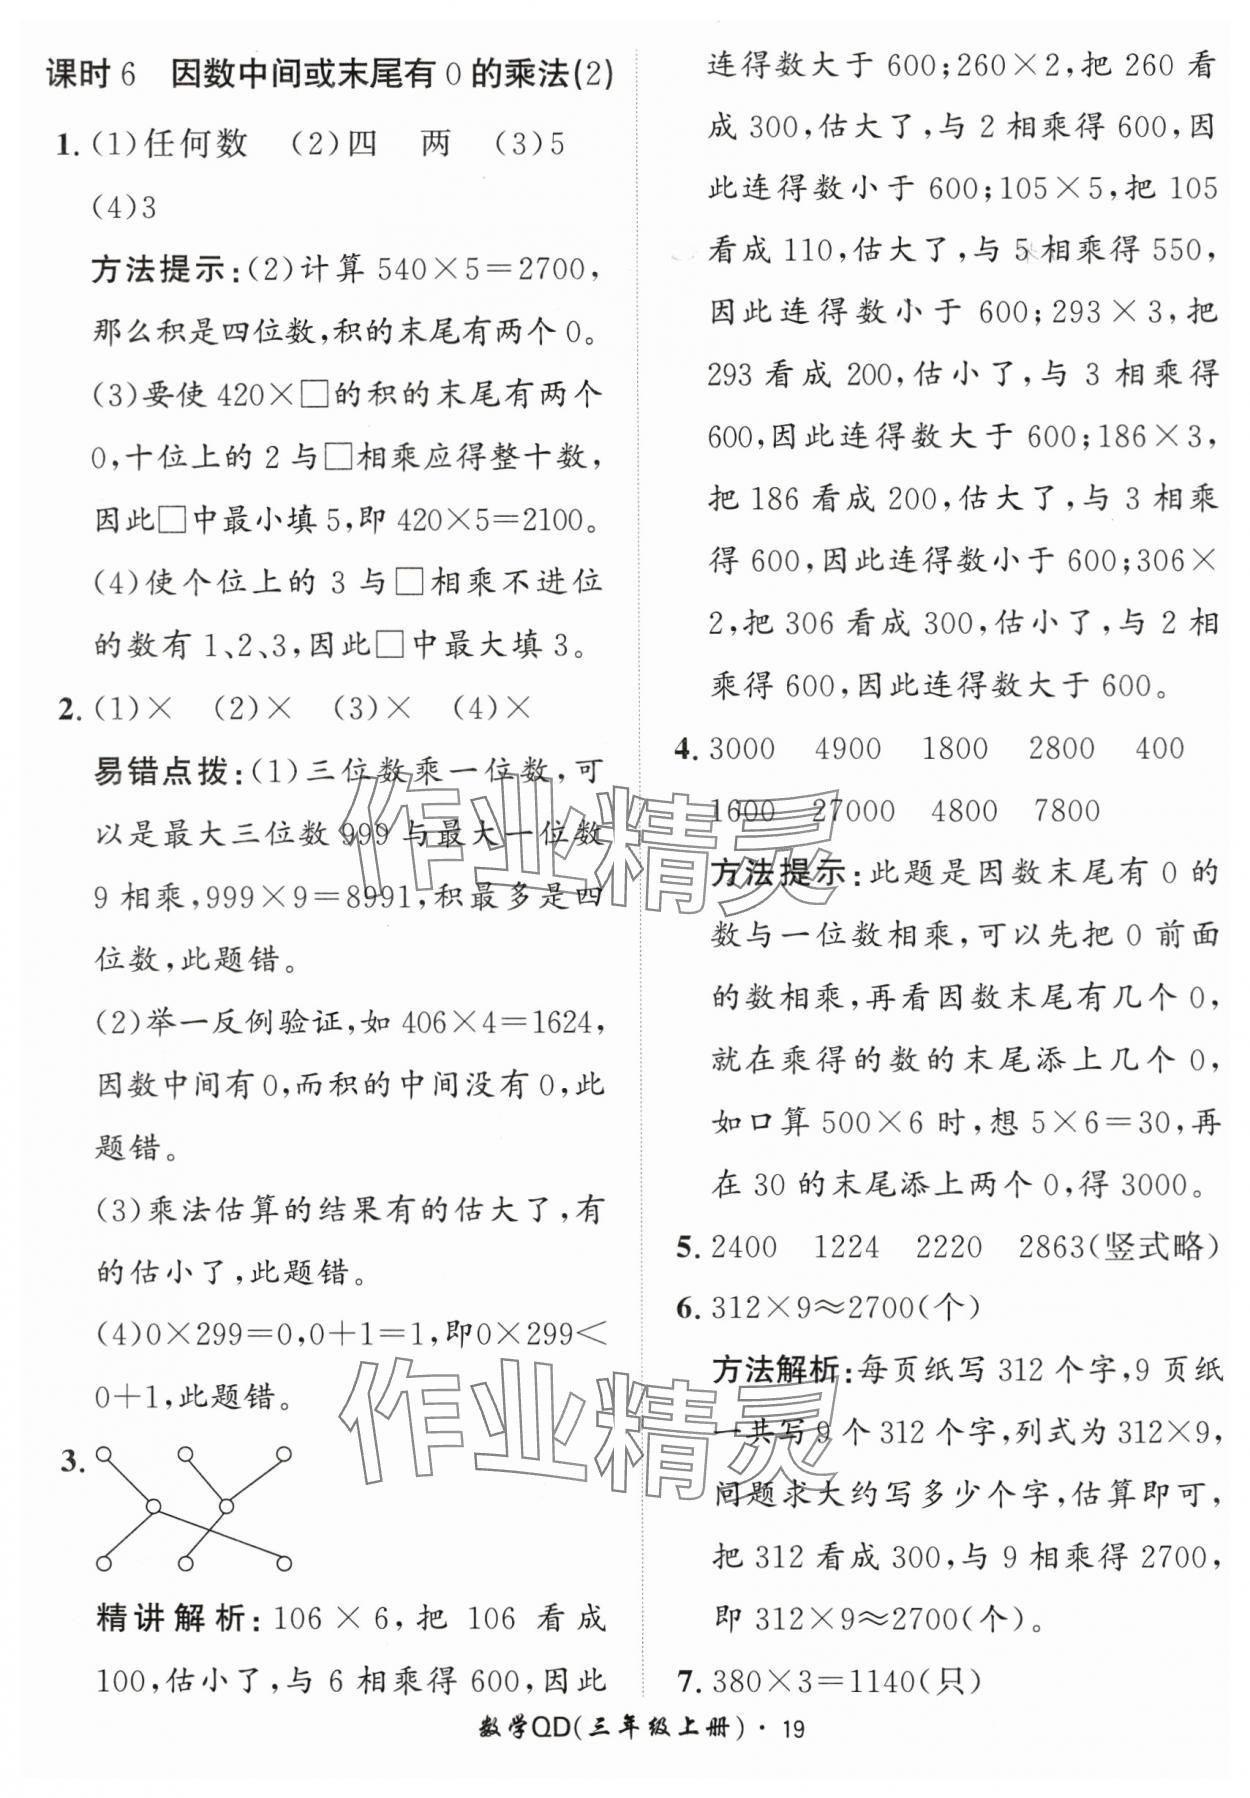 课时 6　因数中间或末尾有 0 的乘法(2)
1. (1)任何数　(2)四　两　(3)5
(4)3
方法提示:(2)计算 540×5=2700,
那么积是四位数,积的末尾有两个 0。
(3)要使 420×□的积的末尾有两个
0,十位上的 2 与□相乘应得整十数,
因此□中最小填 5,即 420×5=2100。
(4)使个位上的 3 与□相乘不进位
的数有 1、2、3,因此□中最大填 3。
2. (1)×　(2)×　(3)×　(4)×
易错点拨:(1)三位数乘一位数,可
以是最大三位数 999 与最大一位数
9 相乘,999×9=8991,积最多是四
位数,此题错。
(2)举一反例验证,如 406×4=1624,
因数中间有 0,而积的中间没有 0,此
题错。
(3)乘法估算的结果有的估大了,有
的估小了,此题错。
(4)0×299=0,0+1=1,即0×299<
0+1,此题错。
3.
精讲解析:106×6,把 106 看成
100,估小了,与 6 相乘得 600,因此
连得数大于 600;260×2,把 260 看
成 300,估大了,与 2 相乘得 600,因
此连得数小于 600;105×5,把 105
看成 110,估大了,与 5 相乘得 550,
因此连得数小于 600;293×3,把
293 看成 200,估小了,与 3 相乘得
600,因此连得数大于 600;186×3,
把 186 看成 200,估大了,与 3 相乘
得 600,因此连得数小于 600;306×
2,把 306 看成 300,估小了,与 2 相
乘得 600,因此连得数大于 600。
4. 3000　4900　1800　2800　400
1600　27000　4800　7800
方法提示:此题是因数末尾有 0 的
数与一位数相乘,可以先把 0 前面
的数相乘,再看因数末尾有几个 0,
就在乘得的数的末尾添上几个 0,
如口算 500×6 时,想 5×6=30,再
在 30 的末尾添上两个 0,得 3000。
5. 2400　1224　2220　2863(竖式略)
6. 312×9≈2700(个)
方法解析:每页纸写 312 个字,9 页纸
一共写 9 个 312 个字,列式为 312×9,
问题求大约写多少个字,估算即可,
把 312 看成 300,与 9 相乘得 2700,
即 312×9≈2700(个)。
7. 380×3=1140(只)
数学QD(三年级上册)·19
作业精灵
作业精灵